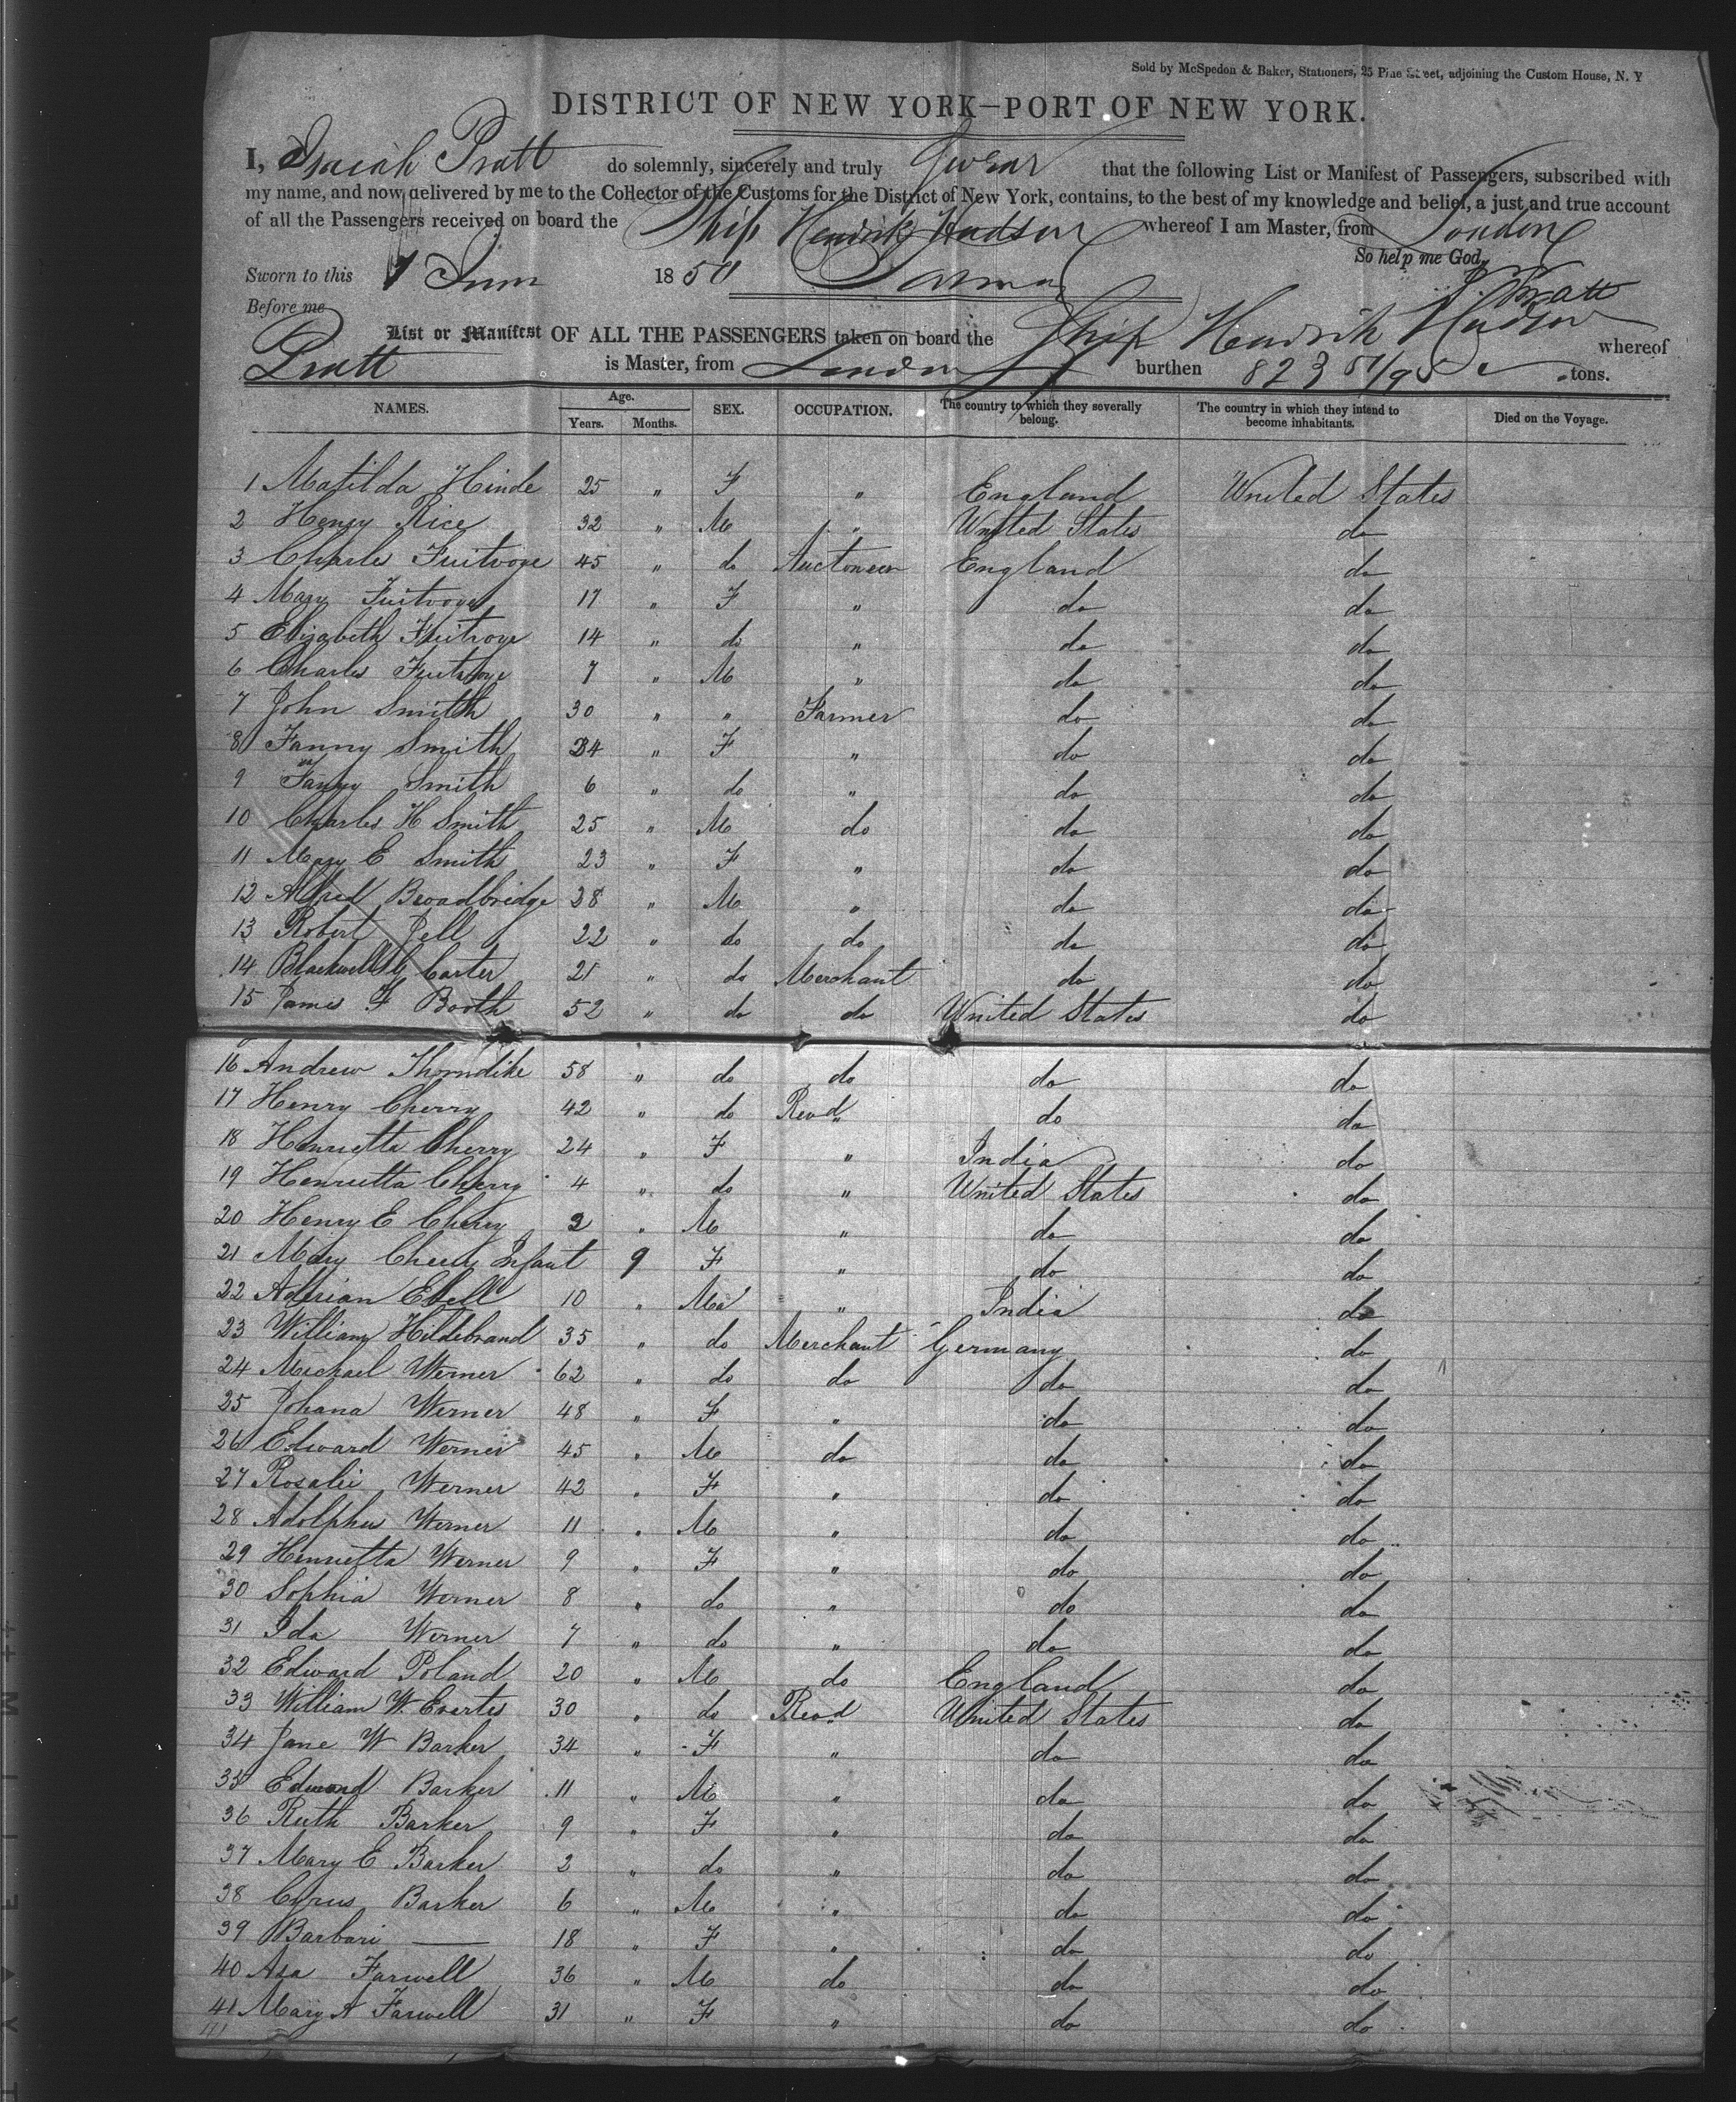 Sold by McSpedon & Baker, Stationers, 25 Pine Street, adjoining the Custom House, N. Y
DISTRICT OF NEW YORK—PORT OF NEW YORK.
I, Isaiah Pratt do solemnly, sincerely and truly Swear that the following List or Manifest of Passengers, subscribed with
my name, and now delivered by me to the Collector of the Customs for the District of New York, contains, to the best of my knowledge and belief, a just and true account
of all the Passengers received on board the Ship Hendrik Hudson whereof I am Master, from London
So help me God,
Sworn to this 1 June 1850
I. Pratt
Before me
List or Manifest OF ALL THE PASSENGERS taken on board the Ship Hendrik Hudson whereof
Pratt is Master, from London burthen 823 51/95 tons.
NAMES. Age. Years. Months. SEX. OCCUPATION. The country to which they severally belong. The country in which they intend to become inhabitants. Died on the Voyage.
1 Matilda Hinde 25 " F " England United States
2 Henry Rice 32 " M " United States do
3 Charles Fuitvoye 45 " do Auctoneer England do
4 Mary Fuitvoye 17 " F " do do
5 Elizabeth Fuitvoye 14 " do " do do
6 Charles Fuitvoye 7 " M " do do
7 John Smith 30 " " Farmer do do
8 Fanny Smith 24 " F " do do
9 Fanny Smith 6 " do " do do
10 Charles H Smith 25 " M do do do
11 Mary E Smith 23 " F " do do
12 Alfred Broadbridge 28 " M " do do
13 Robert Jell 22 " do do do do
14 Blackwell Carter 21 " do Merchant do do
15 James F Booth 52 " do do United States do
16 Andrew Thorndike 58 " do do do do
17 Henry Cherry 42 " do Revd " do do
18 Henrietta Cherry 24 " F " India do
19 Henrietta Cherry 4 " do " United States do
20 Henry E Cherry 2 " M " do do
21 Mary Cherry Infant 9 F " do do
22 Adirian Ebell 10 " Ma " India do
23 William Hildebrand 35 " do Merchant Germany do
24 Michael Werner 62 " do do do do
25 Johana Werner 48 " F " do do
26 Edward Werner 45 " M do do do
27 Rosalie Werner 42 " F " do do
28 Adolphus Werner 11 " M " do do
29 Henrietta Werner 9 " F " do do
30 Sophia Werner 8 " do " do do
31 Ida Werner 7 " do " do do
32 Edward Poland 20 " M do England do
33 William W. Evertes 30 " do Revd United States do
34 Jane W Barker 34 " F " do do
35 Edmond Barker 11 " M " do do
36 Ruth Barker 9 " F " do do
37 Mary E Barker 2 " do " do do
38 Cyrus Barker 6 " M " do do
39 Barbari — 18 " F " do do
40 Asa Farwell 36 " M do do do
41 Mary A Farwell 31 " F " do do
41